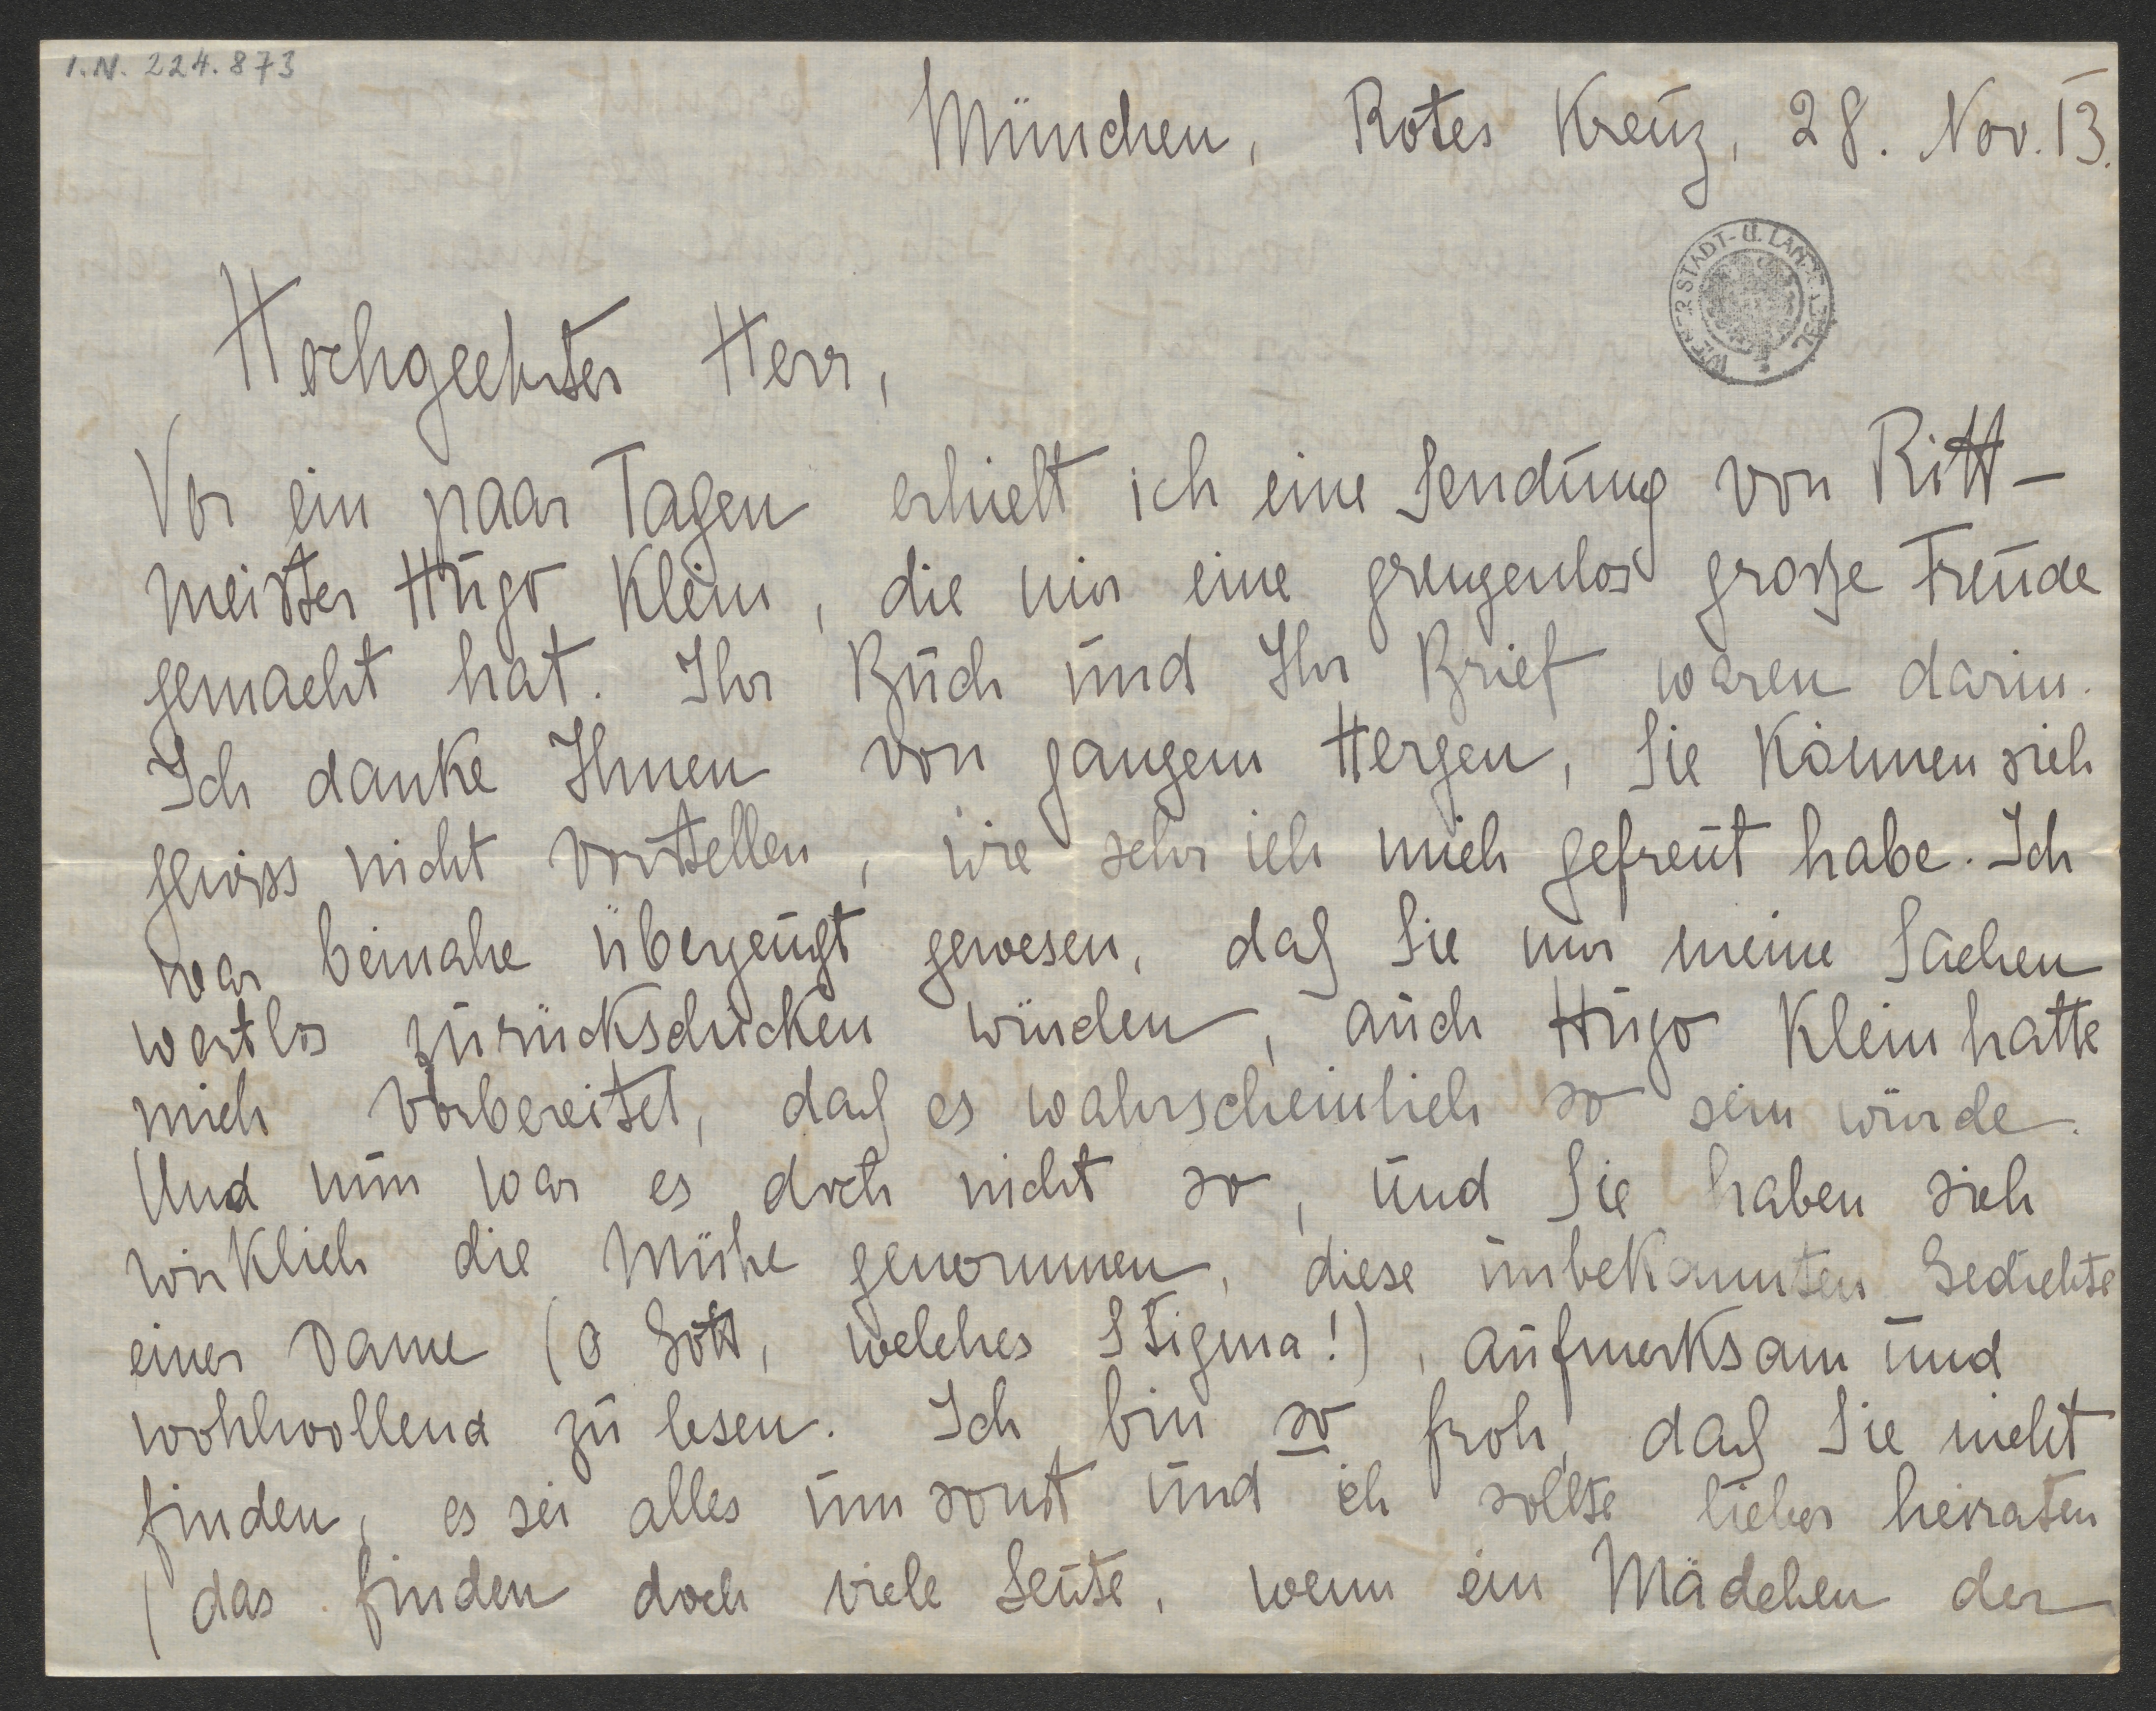 I.N. 224.873
München, Rotes Kreuz, 28. Nov. 13.
WIENER STADT- U. LANDESBIBL.
Hochgeehrter Herr,
Vor ein paar Tagen erhielt ich eine Sendung von Ritt-
meister Hugo Klein, die mir eine grenzenlos große Freude
gemacht hat. Ihr Buch und Ihr Brief waren darin.
Ich danke Ihnen von ganzem Herzen, Sie können sich
gewiss nicht vorstellen, wie sehr ich mich gefreut habe. Ich
war beinahe überzeugt gewesen, daß Sie mir meine Sachen
wortlos zurückschicken würden, auch Hugo Klein hatte
mich vorbereitet, daß es wahrscheinlich so sein würde.
Und nun war es doch nicht so, und Sie haben sich
wirklich die Mühe genommen, diese unbekannten Gedichte
einer Dame (o Gott, welches Stigma!), aufmerksam und
wohlwollend zu lesen. Ich bin so froh, daß Sie nicht
finden, es sei alles umsonst und ich sollte lieber heiraten
(das finden doch viele Leute, wenn ein Mädchen der